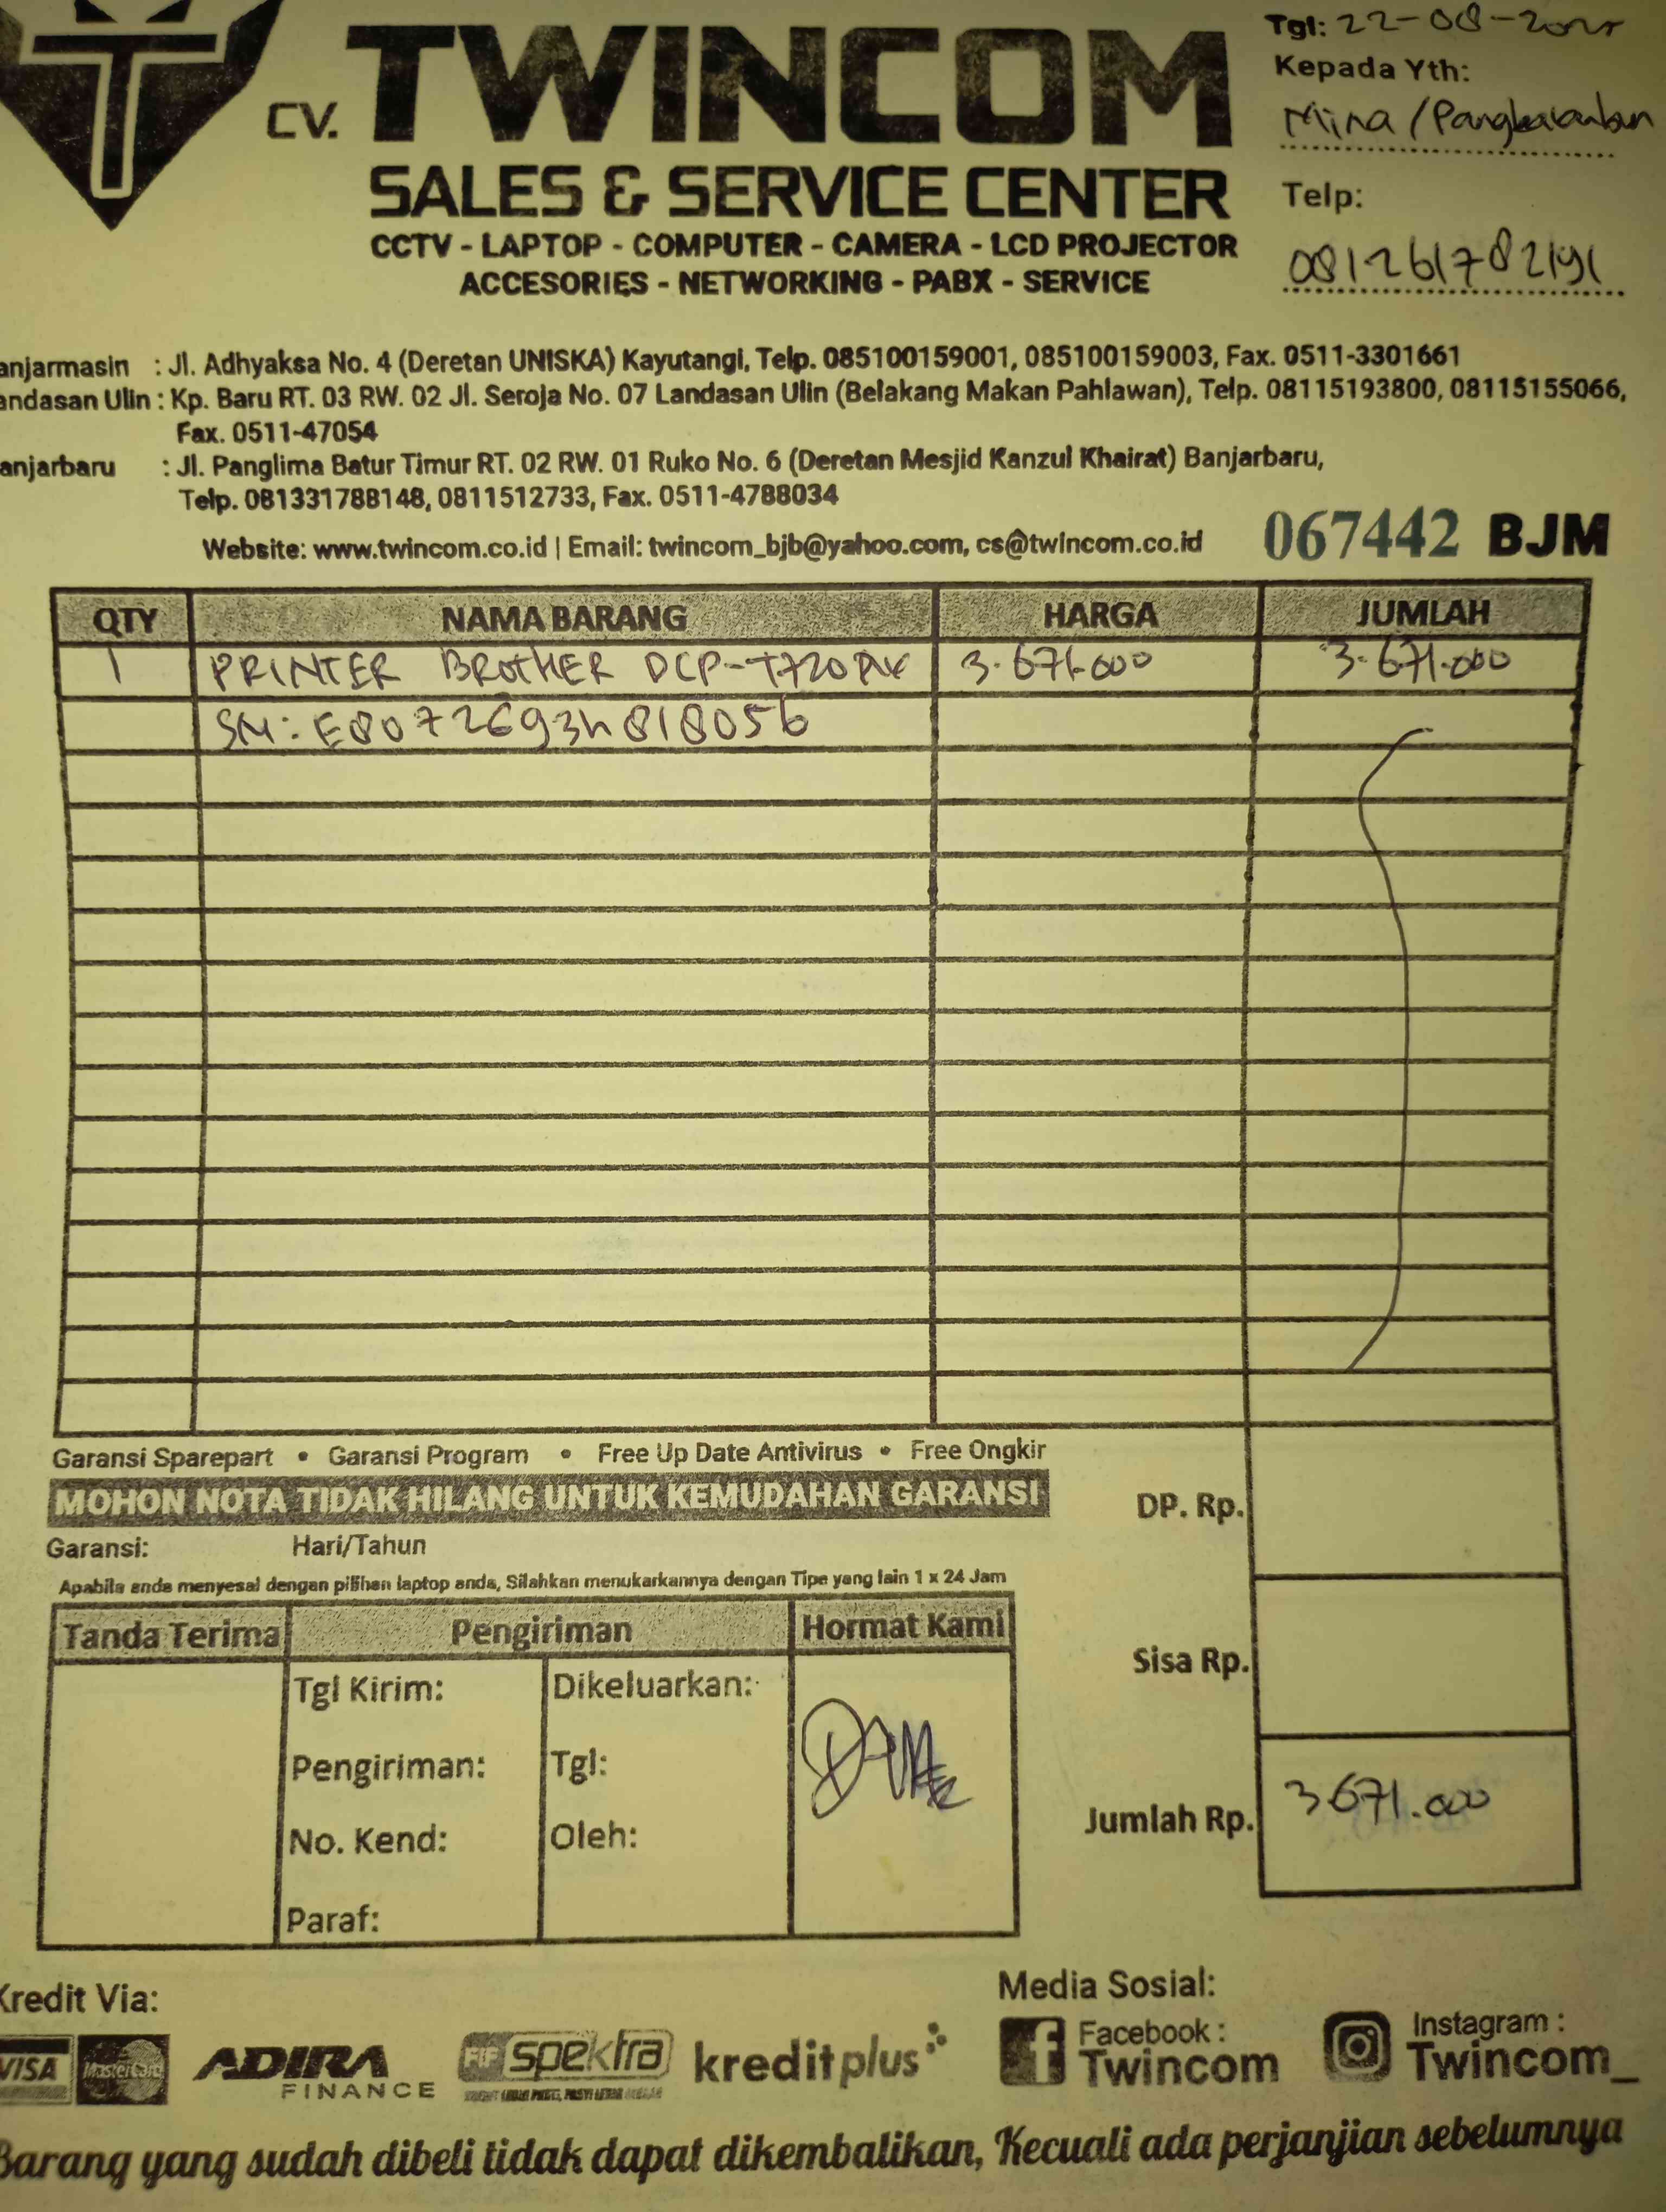 CV. TWINCOM
SALES & SERVICE CENTER
CCTV - LAPTOP - COMPUTER - CAMERA - LCD PROJECTOR
ACCESORIES - NETWORKING - PABX - SERVICE
Tgl: 22-08-2025
Kepada Yth:
Mina / Pangkalanbun
Telp:
081261782191
anjarmasin : Jl. Adhyaksa No. 4 (Deretan UNISKA) Kayutangi, Telp. 085100159001, 085100159003, Fax. 0511-3301661
andasan Ulin : Kp. Baru RT. 03 RW. 02 Jl. Seroja No. 07 Landasan Ulin (Belakang Makan Pahlawan), Telp. 08115193800, 08115155066,
Fax. 0511-47054
anjarbaru : Jl. Panglima Batur Timur RT. 02 RW. 01 Ruko No. 6 (Deretan Mesjid Kanzul Khairat) Banjarbaru,
Telp. 081331788148, 0811512733, Fax. 0511-4788034
Website: www.twincom.co.id | Email: twincom_bjb@yahoo.com, cs@twincom.co.id
067442 BJM
QTY NAMA BARANG HARGA JUMLAH
1 PRINTER BROTHER DCP-T720DW 3.671.000 3.671.000
SN: E80726G3H818056
Garansi Sparepart • Garansi Program • Free Up Date Antivirus • Free Ongkir
MOHON NOTA TIDAK HILANG UNTUK KEMUDAHAN GARANSI
Garansi: Hari/Tahun
Apabila anda menyesal dengan pilihan laptop anda, Silahkan menukarkannya dengan Tipe yang lain 1 x 24 Jam
DP. Rp.
Sisa Rp.
Jumlah Rp. 3.671.000
Tanda Terima Pengiriman Hormat Kami
Tgl Kirim: Dikeluarkan:
Pengiriman: Tgl:
No. Kend: Oleh:
Paraf:
Kredit Via:
VISA MasterCard ADIRA FINANCE FIF spektra kreditplus
Media Sosial:
Facebook : Twincom
Instagram : Twincom_
Barang yang sudah dibeli tidak dapat dikembalikan, Kecuali ada perjanjian sebelumnya